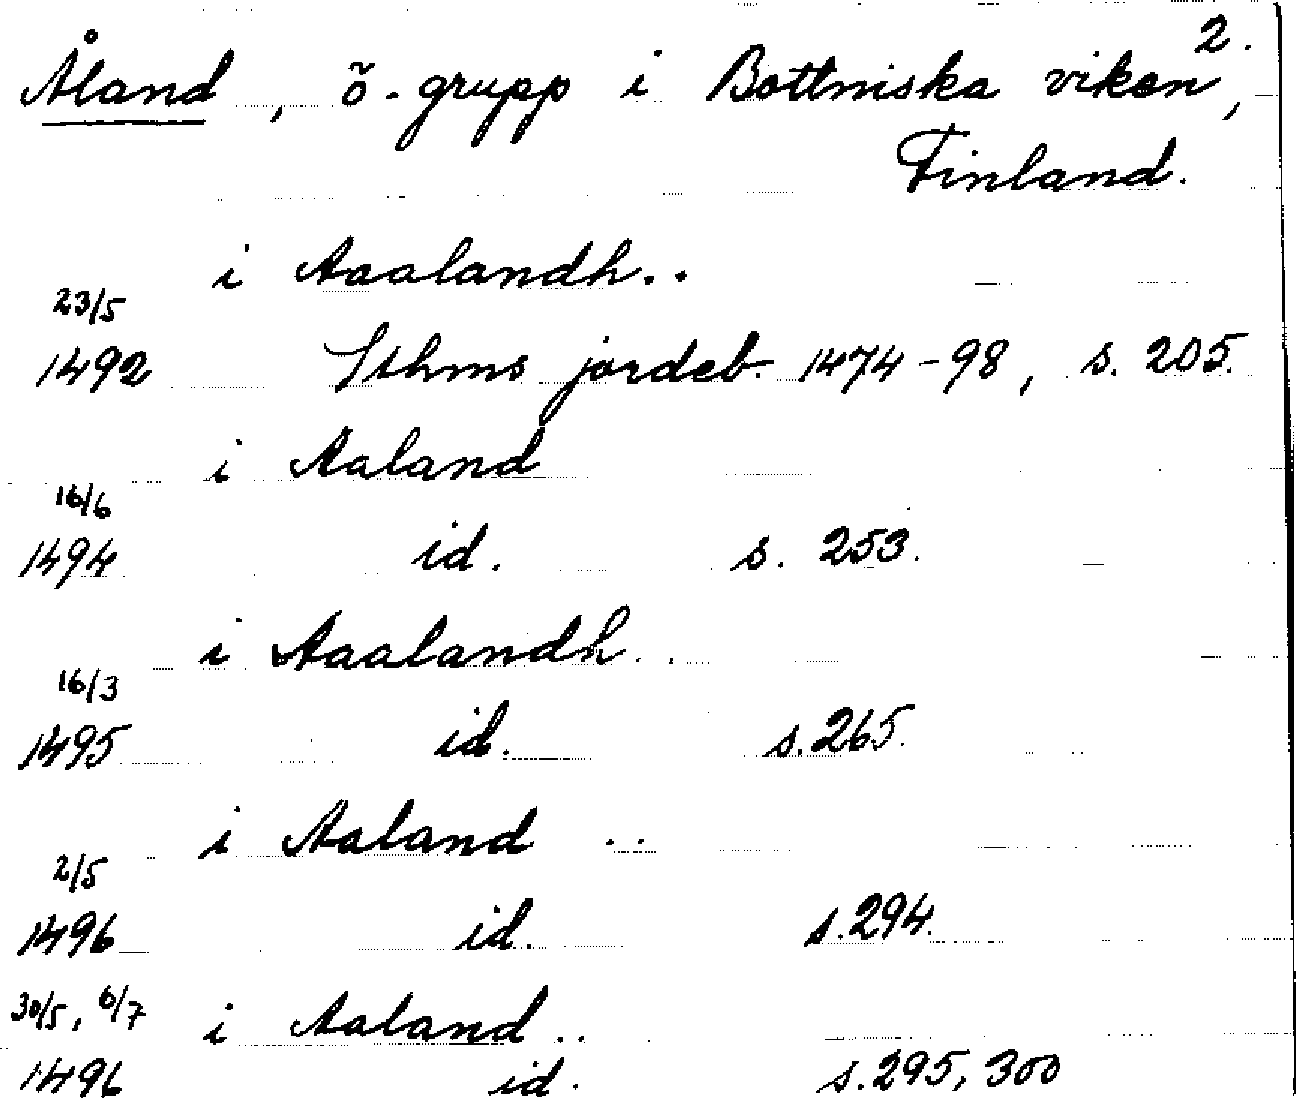 2.
Åland, ö-grupp i Bottniska viken,
Finland.
i Aaalandh..
23/5
1492 Sthms jordeb. 1474-98, s. 205.
i Aaland
16/6
1494 id. s. 253.
i Aaalandh..
16/3
1495 id. s. 265.
i Aaland ..
2/5
1496 id. s. 294.
30/5, 6/7 i Aaland..
1496 id. s. 295, 300